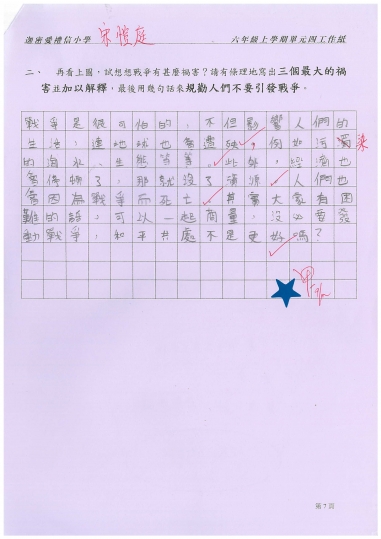 迦密愛禮信小學 宋愷庭 六年級上學期單元四工作紙
二、 再看上圖,試想想戰爭有甚麼禍害?請有條理地寫出三個最大的禍
害並加以解釋,最後用幾句話來規勸人們不要引發戰爭。
戰爭是很可怕的,不但影響人們的
生活,連地球也會遭殃,例如污染
的海水、生態等等。此外,經濟也
會停頓了,那就沒了資源,人們也
會因為戰爭而死亡。其實大家有困
難的話,可以一起商量,沒必要發
動戰爭,和平共處不是更好嗎?
第7頁